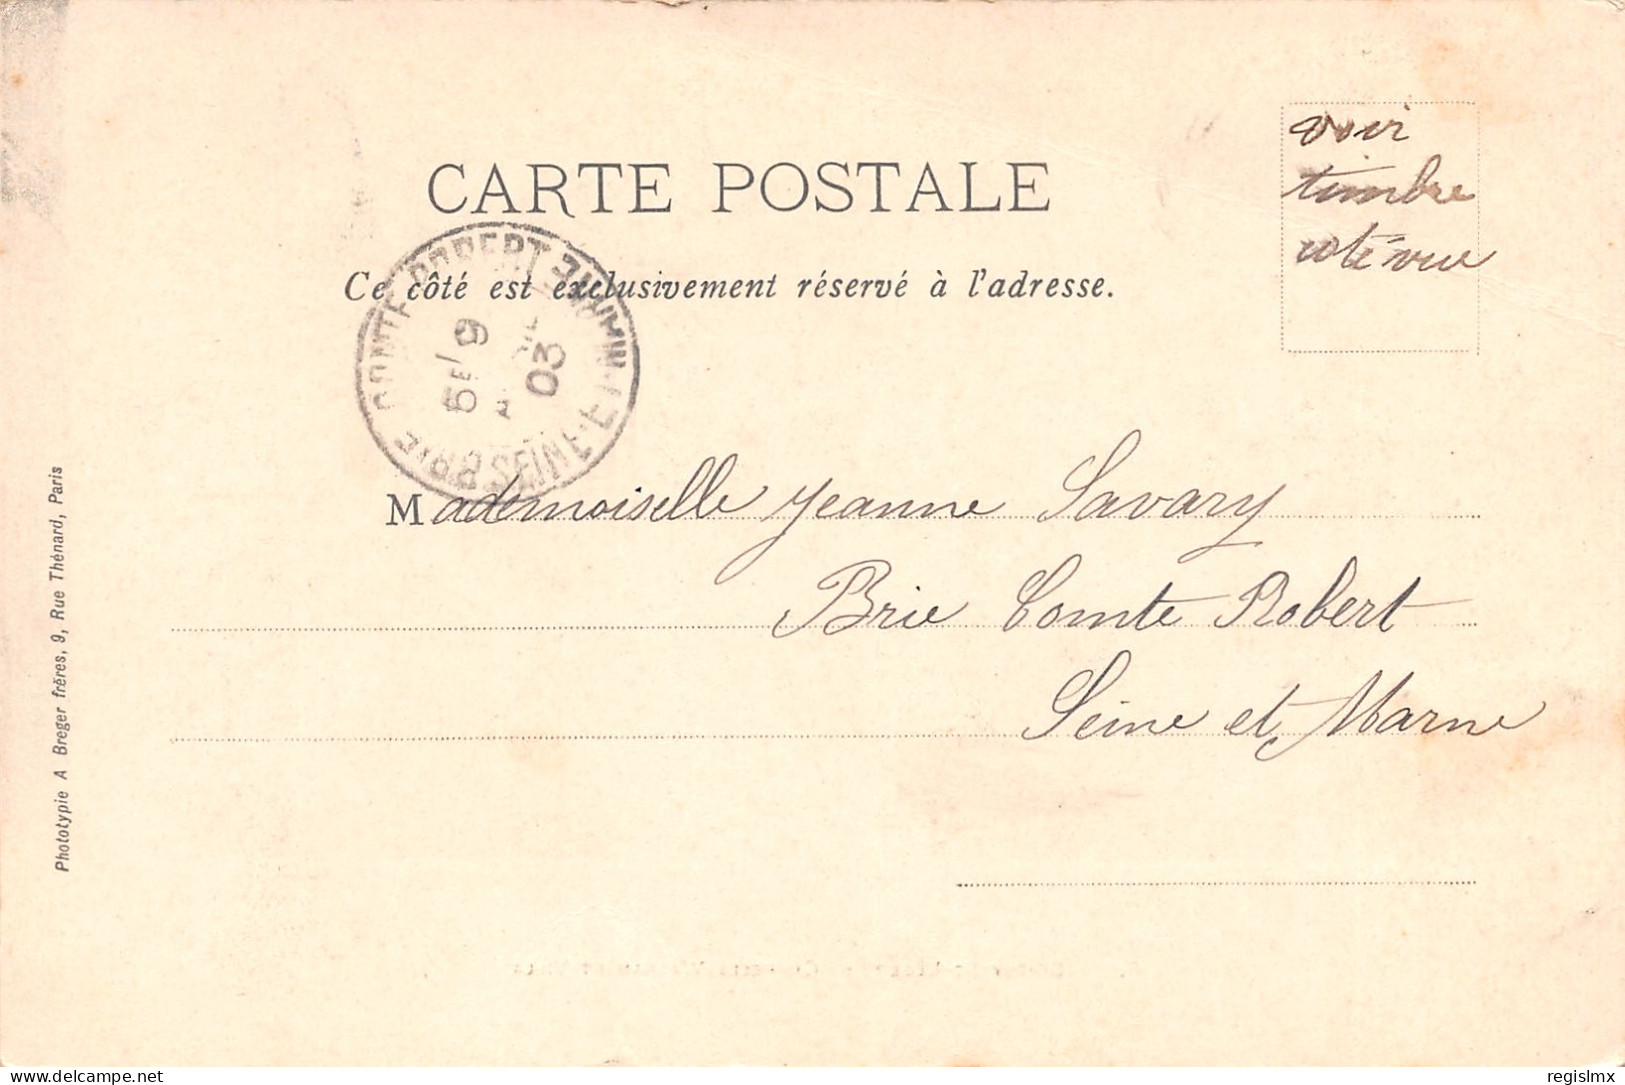 CARTE POSTALE
Ce côté est exclusivement réservé à l'adresse.
voir
timbre
côté vue
BRIE COMTE ROBERT
SEINE-ET-MARNE
03
Mademoiselle Jeanne Savary
Brie Comte Robert
Seine et Marne
Phototypie A Breger frères, 9, Rue Thénard, Paris
delcampe.net
regislmx